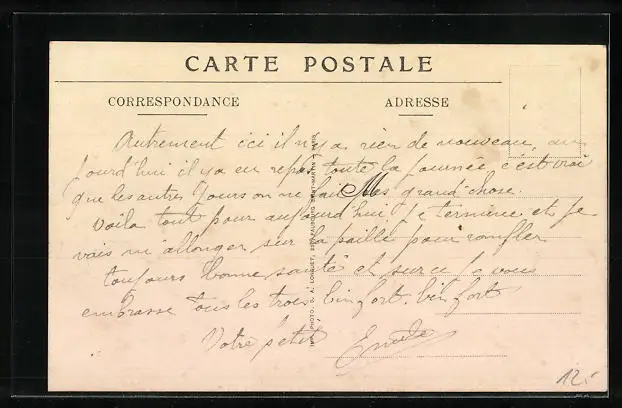 CARTE POSTALE
CORRESPONDANCE
ADRESSE
Autrement ici il n'y a rien de nouveau, au
jourd'hui il y a eu repos toute la journée c'est vrai
que les autres jours on ne fait pas grand chose.
Voila tout pour aujourd'hui, je termine et je
vais m'allonger sur la paille pour ronfler
toujours bonne santé et sur ce je vous
embrasse tous les trois bien fort, bien fort
Votre petit
IMP. PHOTO. D. A. LONGUET, FAUBOURG SAINT-MARTIN PARIS
12